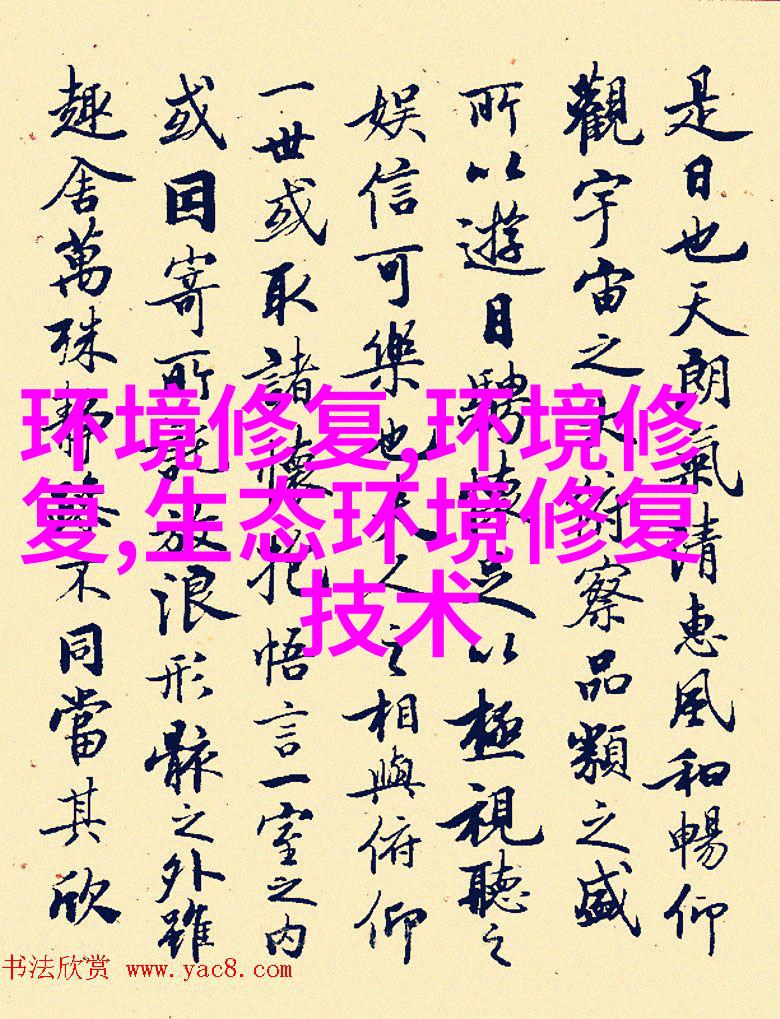 是日也天朗氣清惠風和暢仰
觀宇宙之大俯察品類之盛
所以遊目騁懷足以極視聽之
娱信可樂也夫人之相與俯仰
一世或取諸懷抱悟言一室之内
或因寄所託放浪形骸之外雖
趣舍萬殊静躁不同當其欣
环境修复,环境修
复,生态环境修复
技术
书法欣赏 www.yac8.com